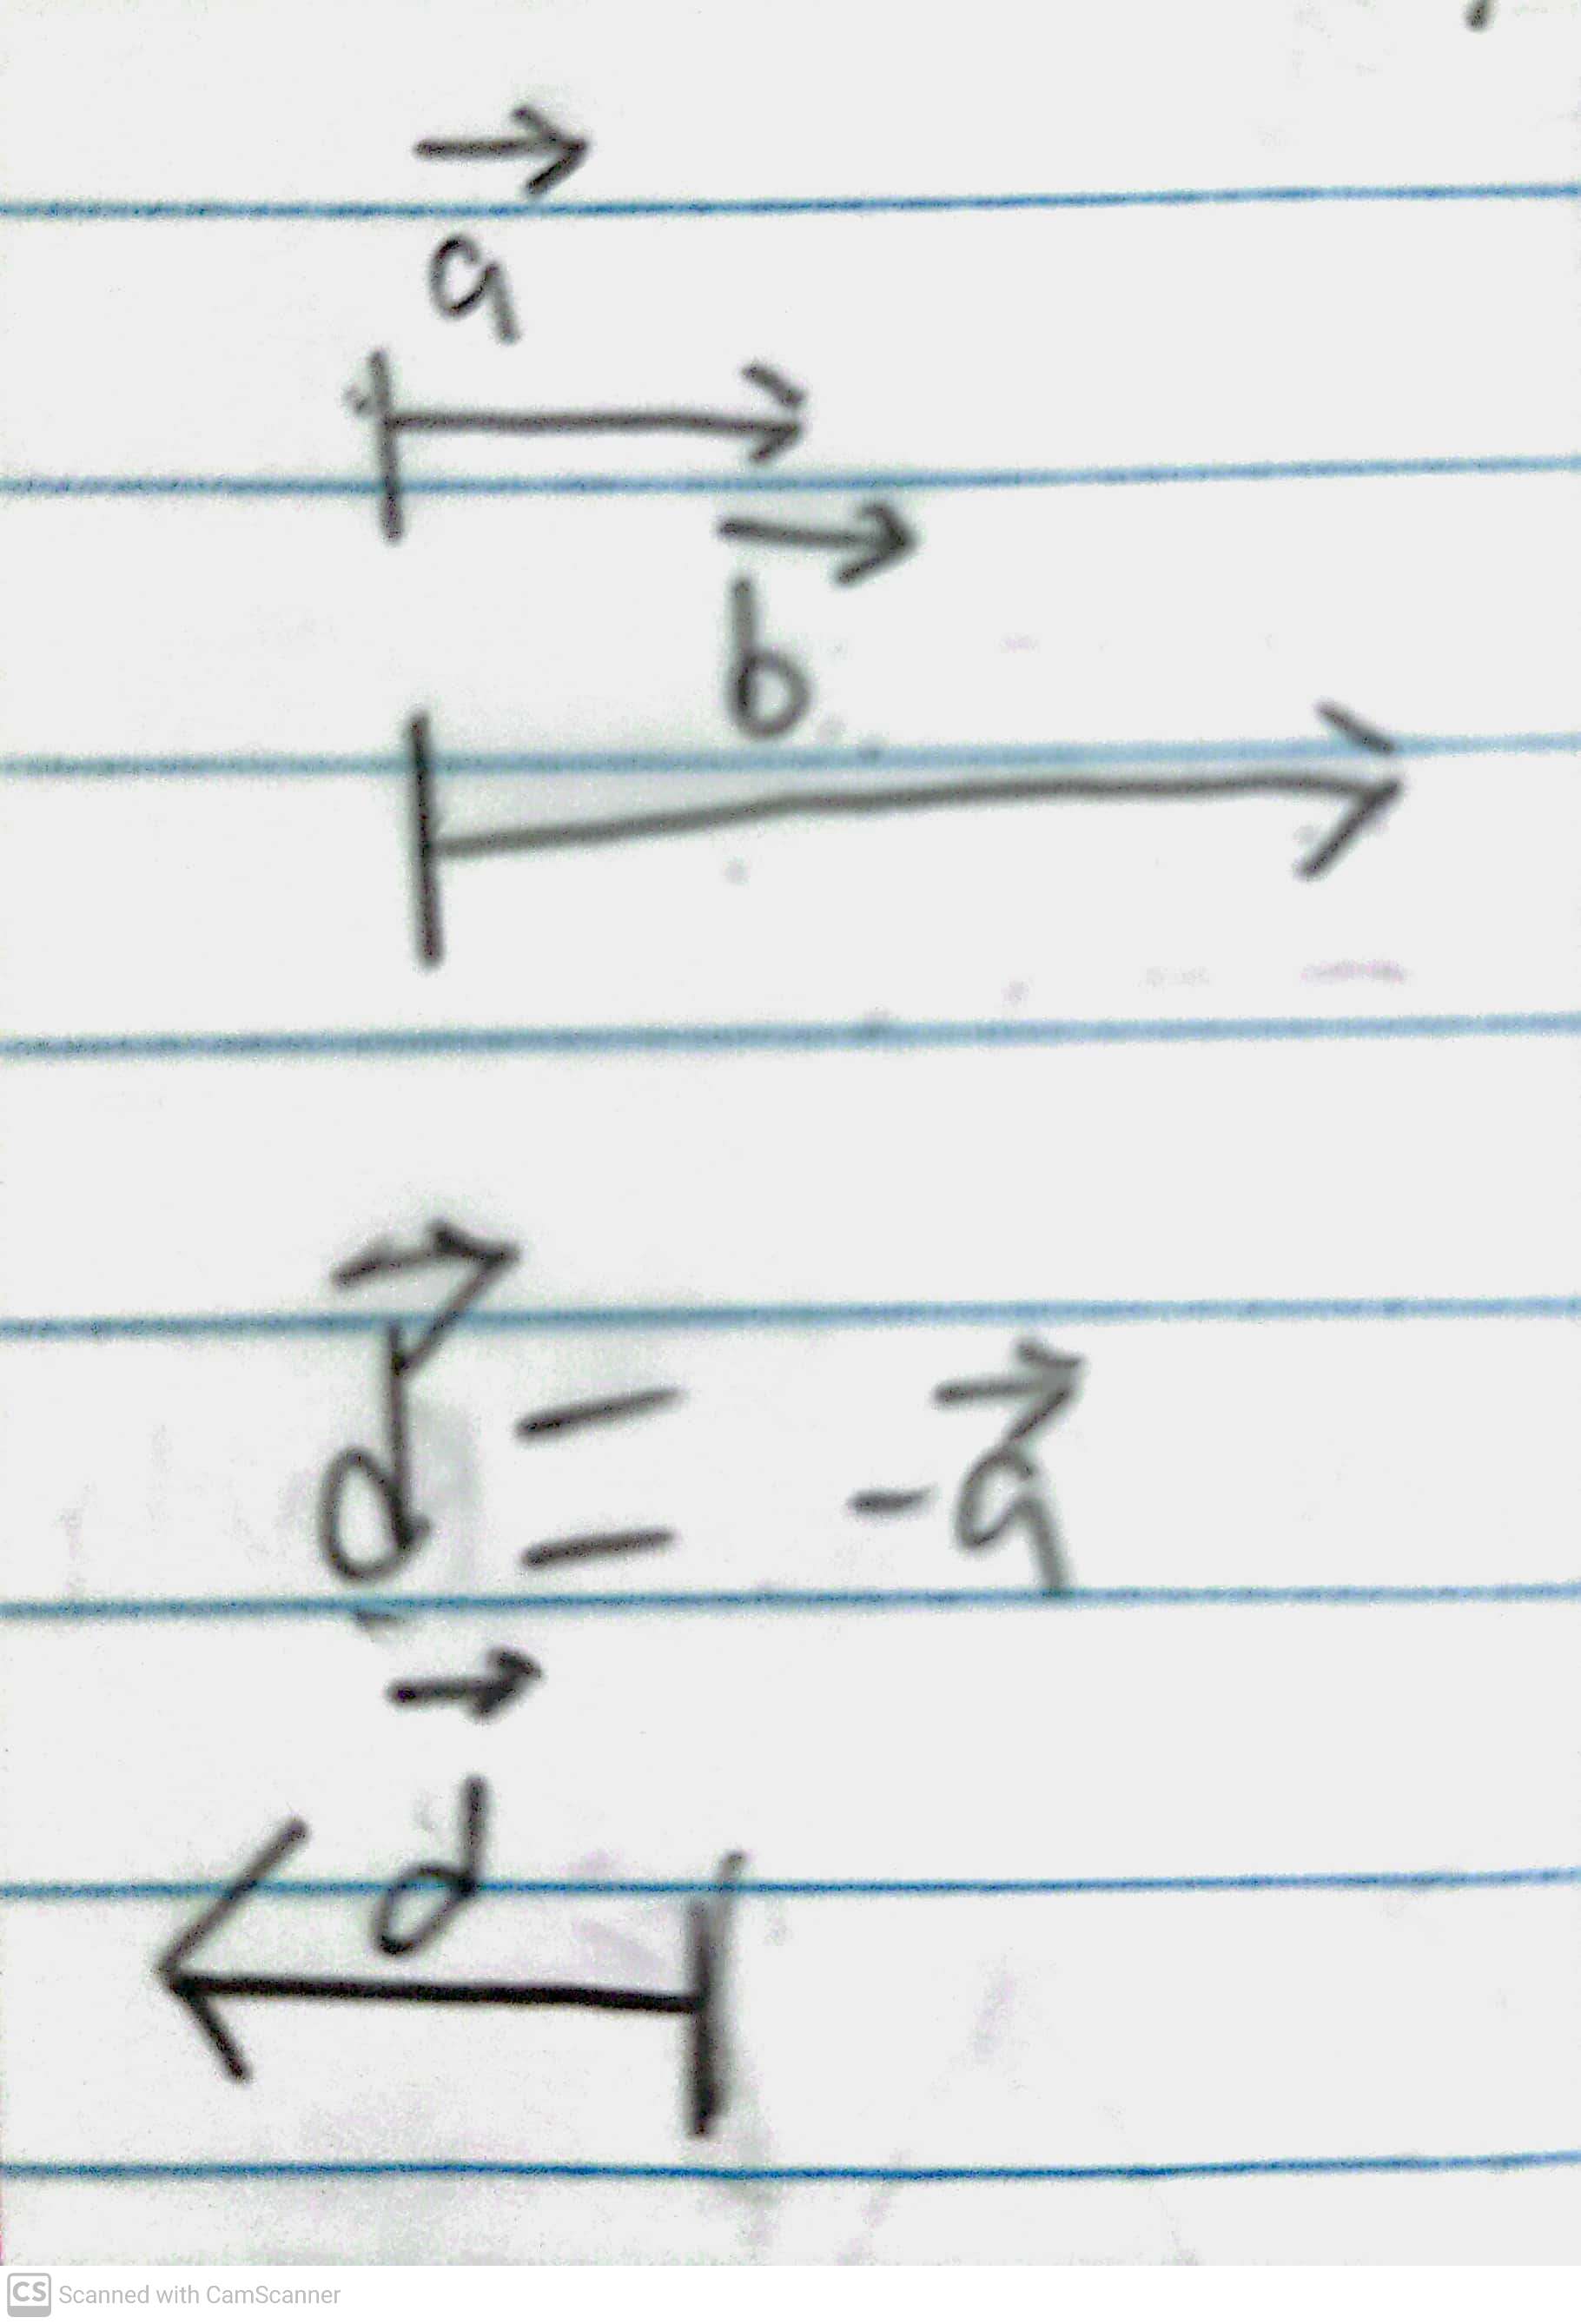 a
b
d = -a
d
CS Scanned with CamScanner